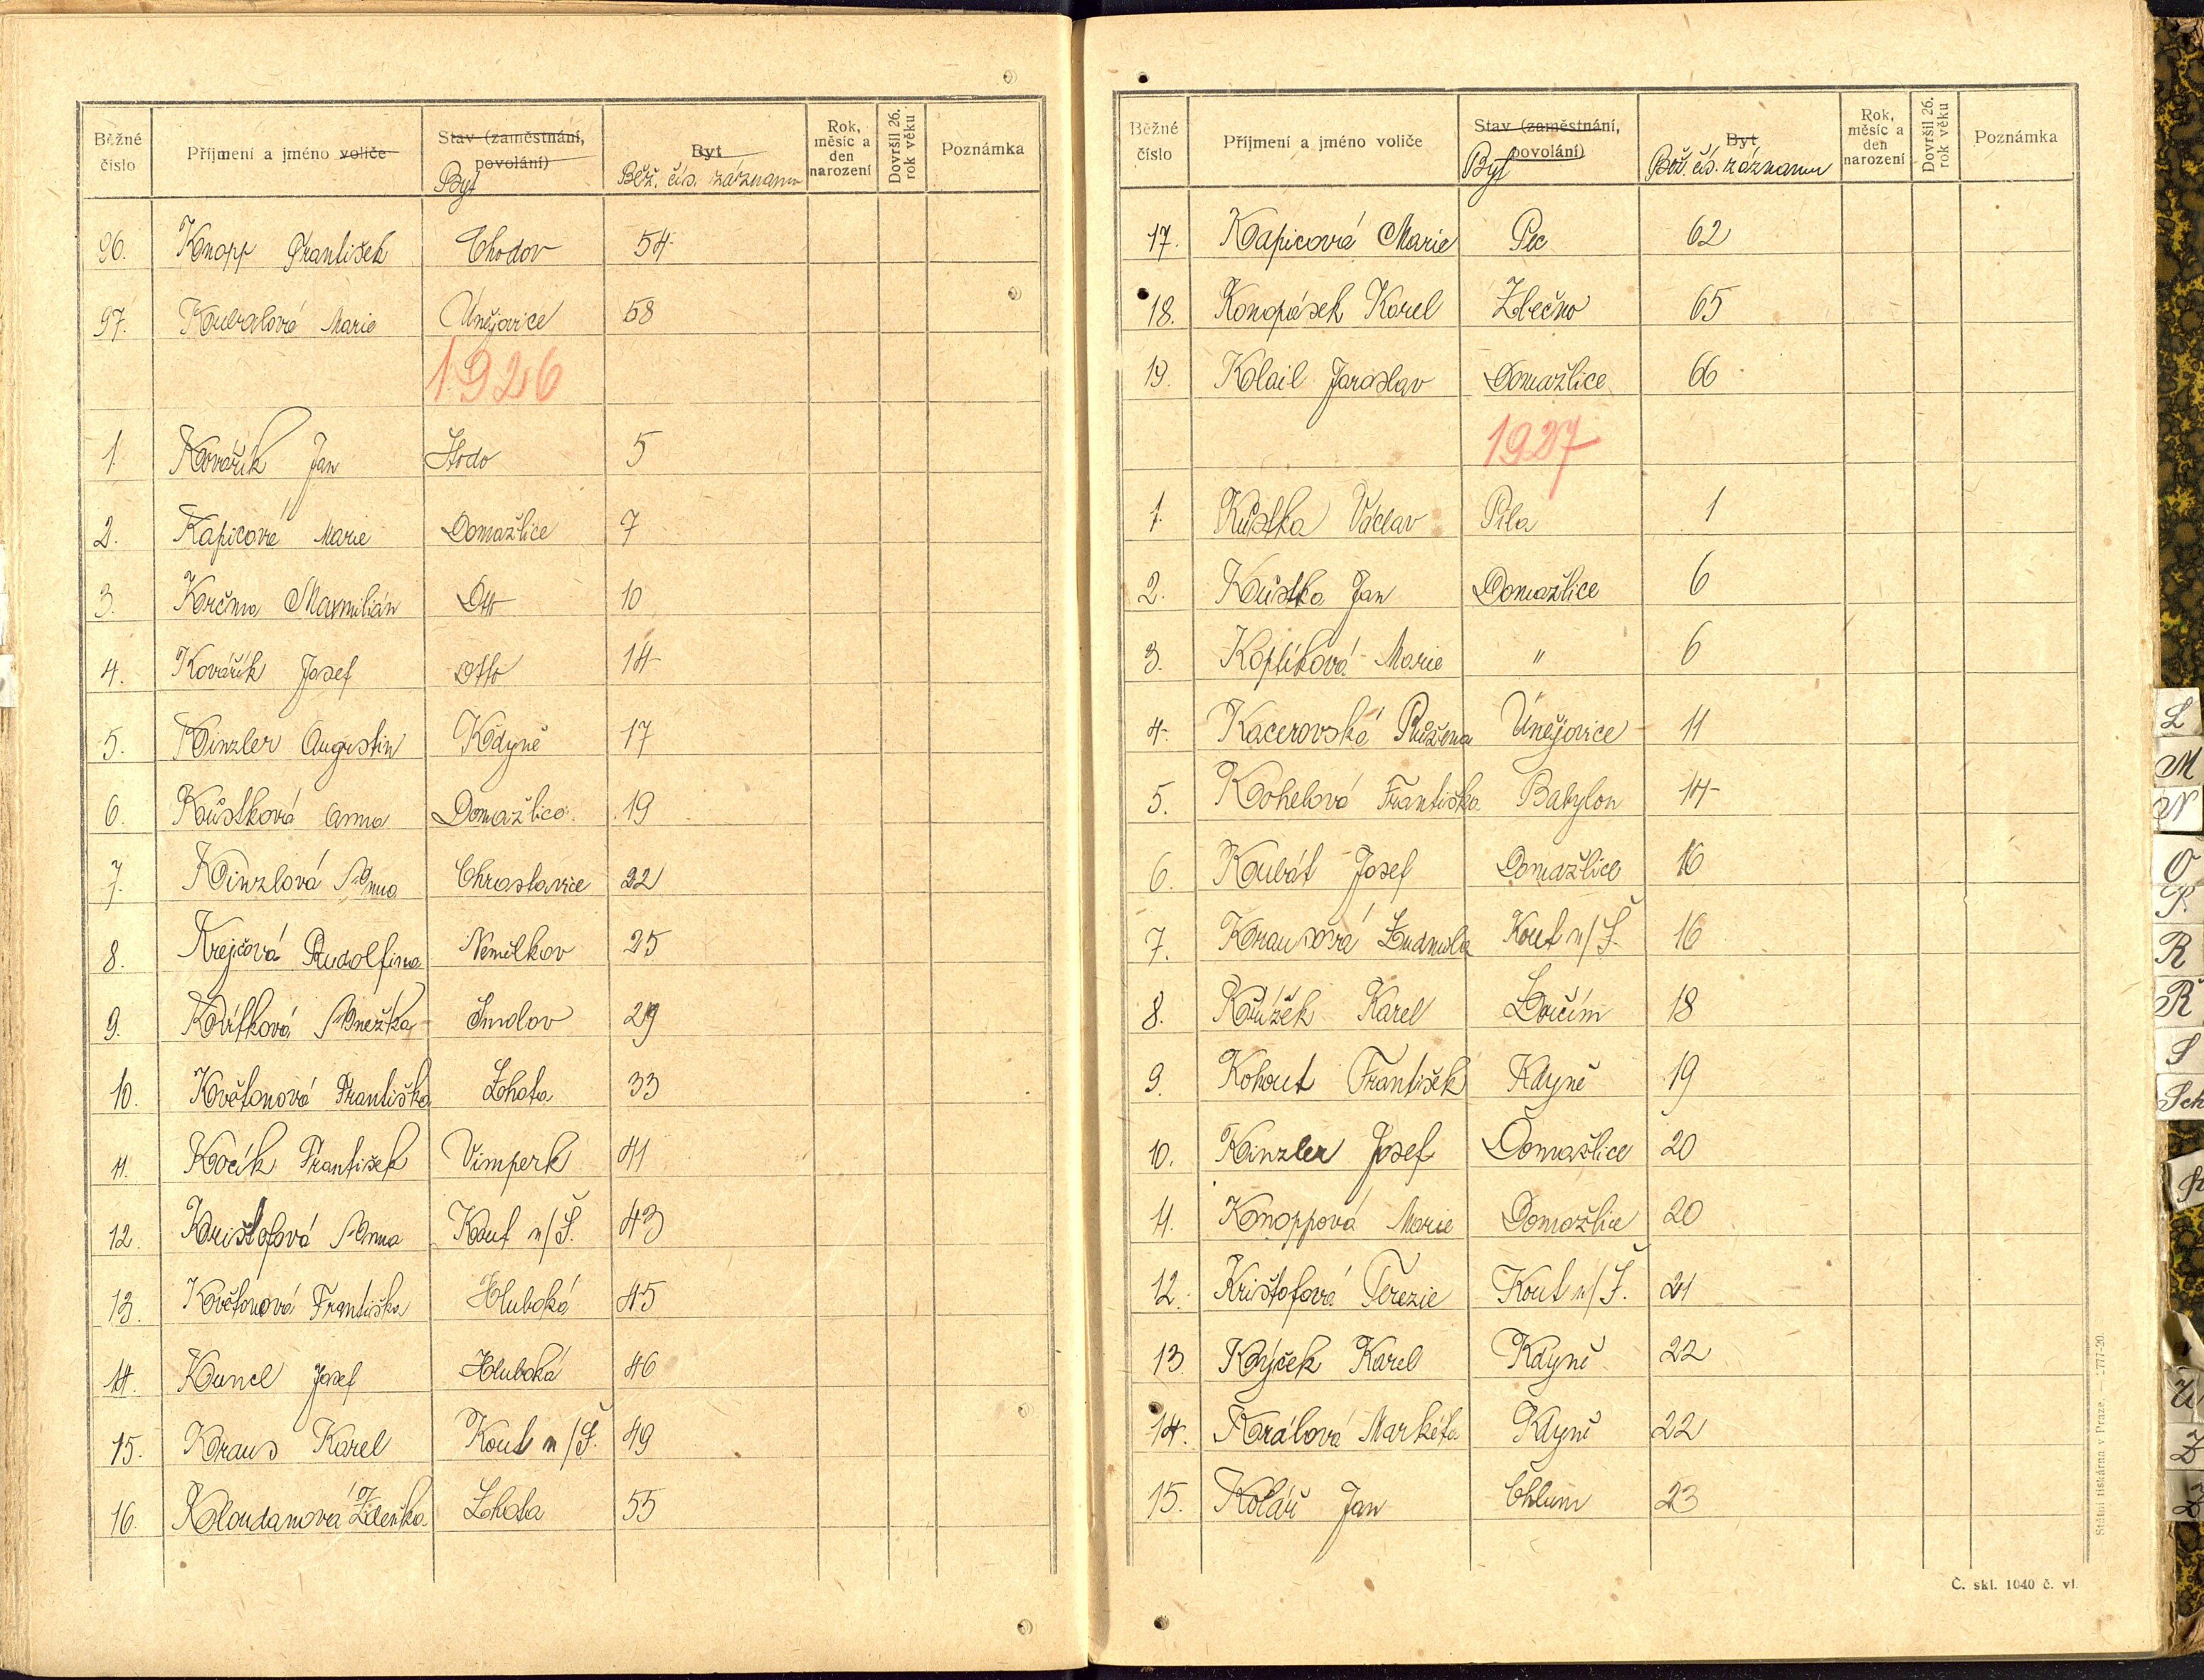 Běžné číslo | Příjmení a jméno voliče | Stav (zaměstnání, povolání) Byt | Byt Běž. čís. záznamu | Rok, měsíc a den narození | Dovršil 26. rok věku | Poznámka
96. Knopp František Chodov 54
97. Kubalová Marie Únějovice 58
1926
1. Kovařík Jan Hodo 5
2. Kapicová Marie Domažlice 7
3. Krčma Maxmilián Dtto 10
4. Kovářík Josef Dtto 14
5. Kinzler Augustin Kdyně 17
6. Kůstková Anna Domažlice 19
7. Kinzlová Anna Chrastavice 22
8. Krejčová Rudolfina Nemilkov 25
9. Anežka Smolov 29
10. Květonová Františka Lhota 33
11. Kocík František Vimperk 41
12. Krištofová Anna Kout n/Š. 43
13. Květonová Františka Hluboká 45
14. Kuncl Josef Hluboká 46
15. Kraus Karel Kout n/Š. 49
16. Kloudanová Zdeňka Lhota 55
Běžné číslo | Příjmení a jméno voliče | Stav (zaměstnání, povolání) Byt | Byt Běž. čís. záznamu | Rok, měsíc a den narození | Dovršil 26. rok věku | Poznámka
17. Kapicová Marie Pec 62
18. Konopásek Karel Zbečno 65
19. Klail Jaroslav Domažlice 66
1927
1. Kůstka Václav Pila 1
2. Kůstka Jan Domažlice 6
3. Koptíková Marie " 6
4. Kacerovská Růžena Únějovice 11
5. Kohelová Františka Babylon 14
6. Kubát Josef Domažlice 16
7. Krausová Ludmila Kout n/Š. 16
8. Křížek Karel Loučim 18
9. Kohout František Kdyně 19
10. Kinzler Josef Domažlice 20
11. Knoppová Marie Domažlice 20
12. Krištofová Terezie Kout n/Š. 21
13. Karel Kdyně 22
14. Králová Markéta Kdyně 22
15. Kolář Jan Chlum 23
Státní tiskárna v Praze. — 2777-20.
Č. skl. 1040 č. vl.
L
M
N
O
P.
R
Ř
S
Sch
Z
Ž